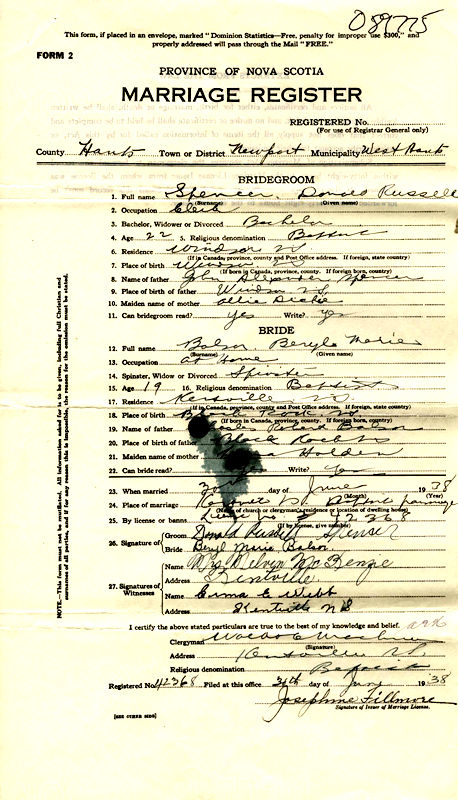 O89775
This form, if placed in an envelope, marked "Dominion Statistics—Free, penalty for improper use $300," and
properly addressed will pass through the Mail "FREE."
FORM 2
PROVINCE OF NOVA SCOTIA
MARRIAGE REGISTER
REGISTERED No.
(For use of Registrar General only)
County Hants Town or District Newport Municipality West Hants
BRIDEGROOM
1. Full name Spencer Donald Russell
(Surname) (Given name)
2. Occupation Clerk
3. Bachelor, Widower or Divorced Bachelor
4. Age 22 5. Religious denomination Baptist
6. Residence Windsor NS
(If in Canada, province, county and Post Office address. If foreign, state country)
7. Place of birth Windsor NS
(If born in Canada, province, county. If foreign born, country)
8. Name of father John Alexander Spencer
9. Place of birth of father Windsor NS
10. Maiden name of mother Allie
11. Can bridegroom read? Yes Write? Yes
BRIDE
12. Full name Balsor Beryl Marie
(Surname) (Given name)
13. Occupation at Home
14. Spinster, Widow or Divorced Spinster
15. Age 19 16. Religious denomination Baptist
17. Residence Kentville NS
(If in Canada, province, county and Post Office address. If foreign, state country)
18. Place of birth Rock NS
(If born in Canada, province, county. If foreign born, country)
19. Name of father
20. Place of birth of father Black Rock NS
21. Maiden name of mother Holden
22. Can bride read? Write? Yes
23. When married day of June 1938
(Month) (Year)
24. Place of marriage Baptist parsonage
(Name of church or clergyman's residence or location of dwelling house)
25. By license or banns License No 42368
(If by license, give number)
26. Signature of Groom Donald Russell Spencer
Bride Beryl Marie Balsor
27. Signatures of Witnesses
Name Mrs Melvin McKenzie
Address Kentville
Name Erma E Webb
Address Kentville NS
I certify the above stated particulars are true to the best of my knowledge and belief.
Clergyman
(Signature)
Address Kentville NS
Religious denomination Baptist
Registered No. 42368 Filed at this office day of June 1938
Josephine Fillmore
Signature of Issuer of Marriage License.
[SEE OTHER SIDE]
NOTE.—This form must not be mutilated. All information asked for is to be given, including full Christian and
surnames of all parties, and if for any reason this is impossible, the reason for the omission must be stated.